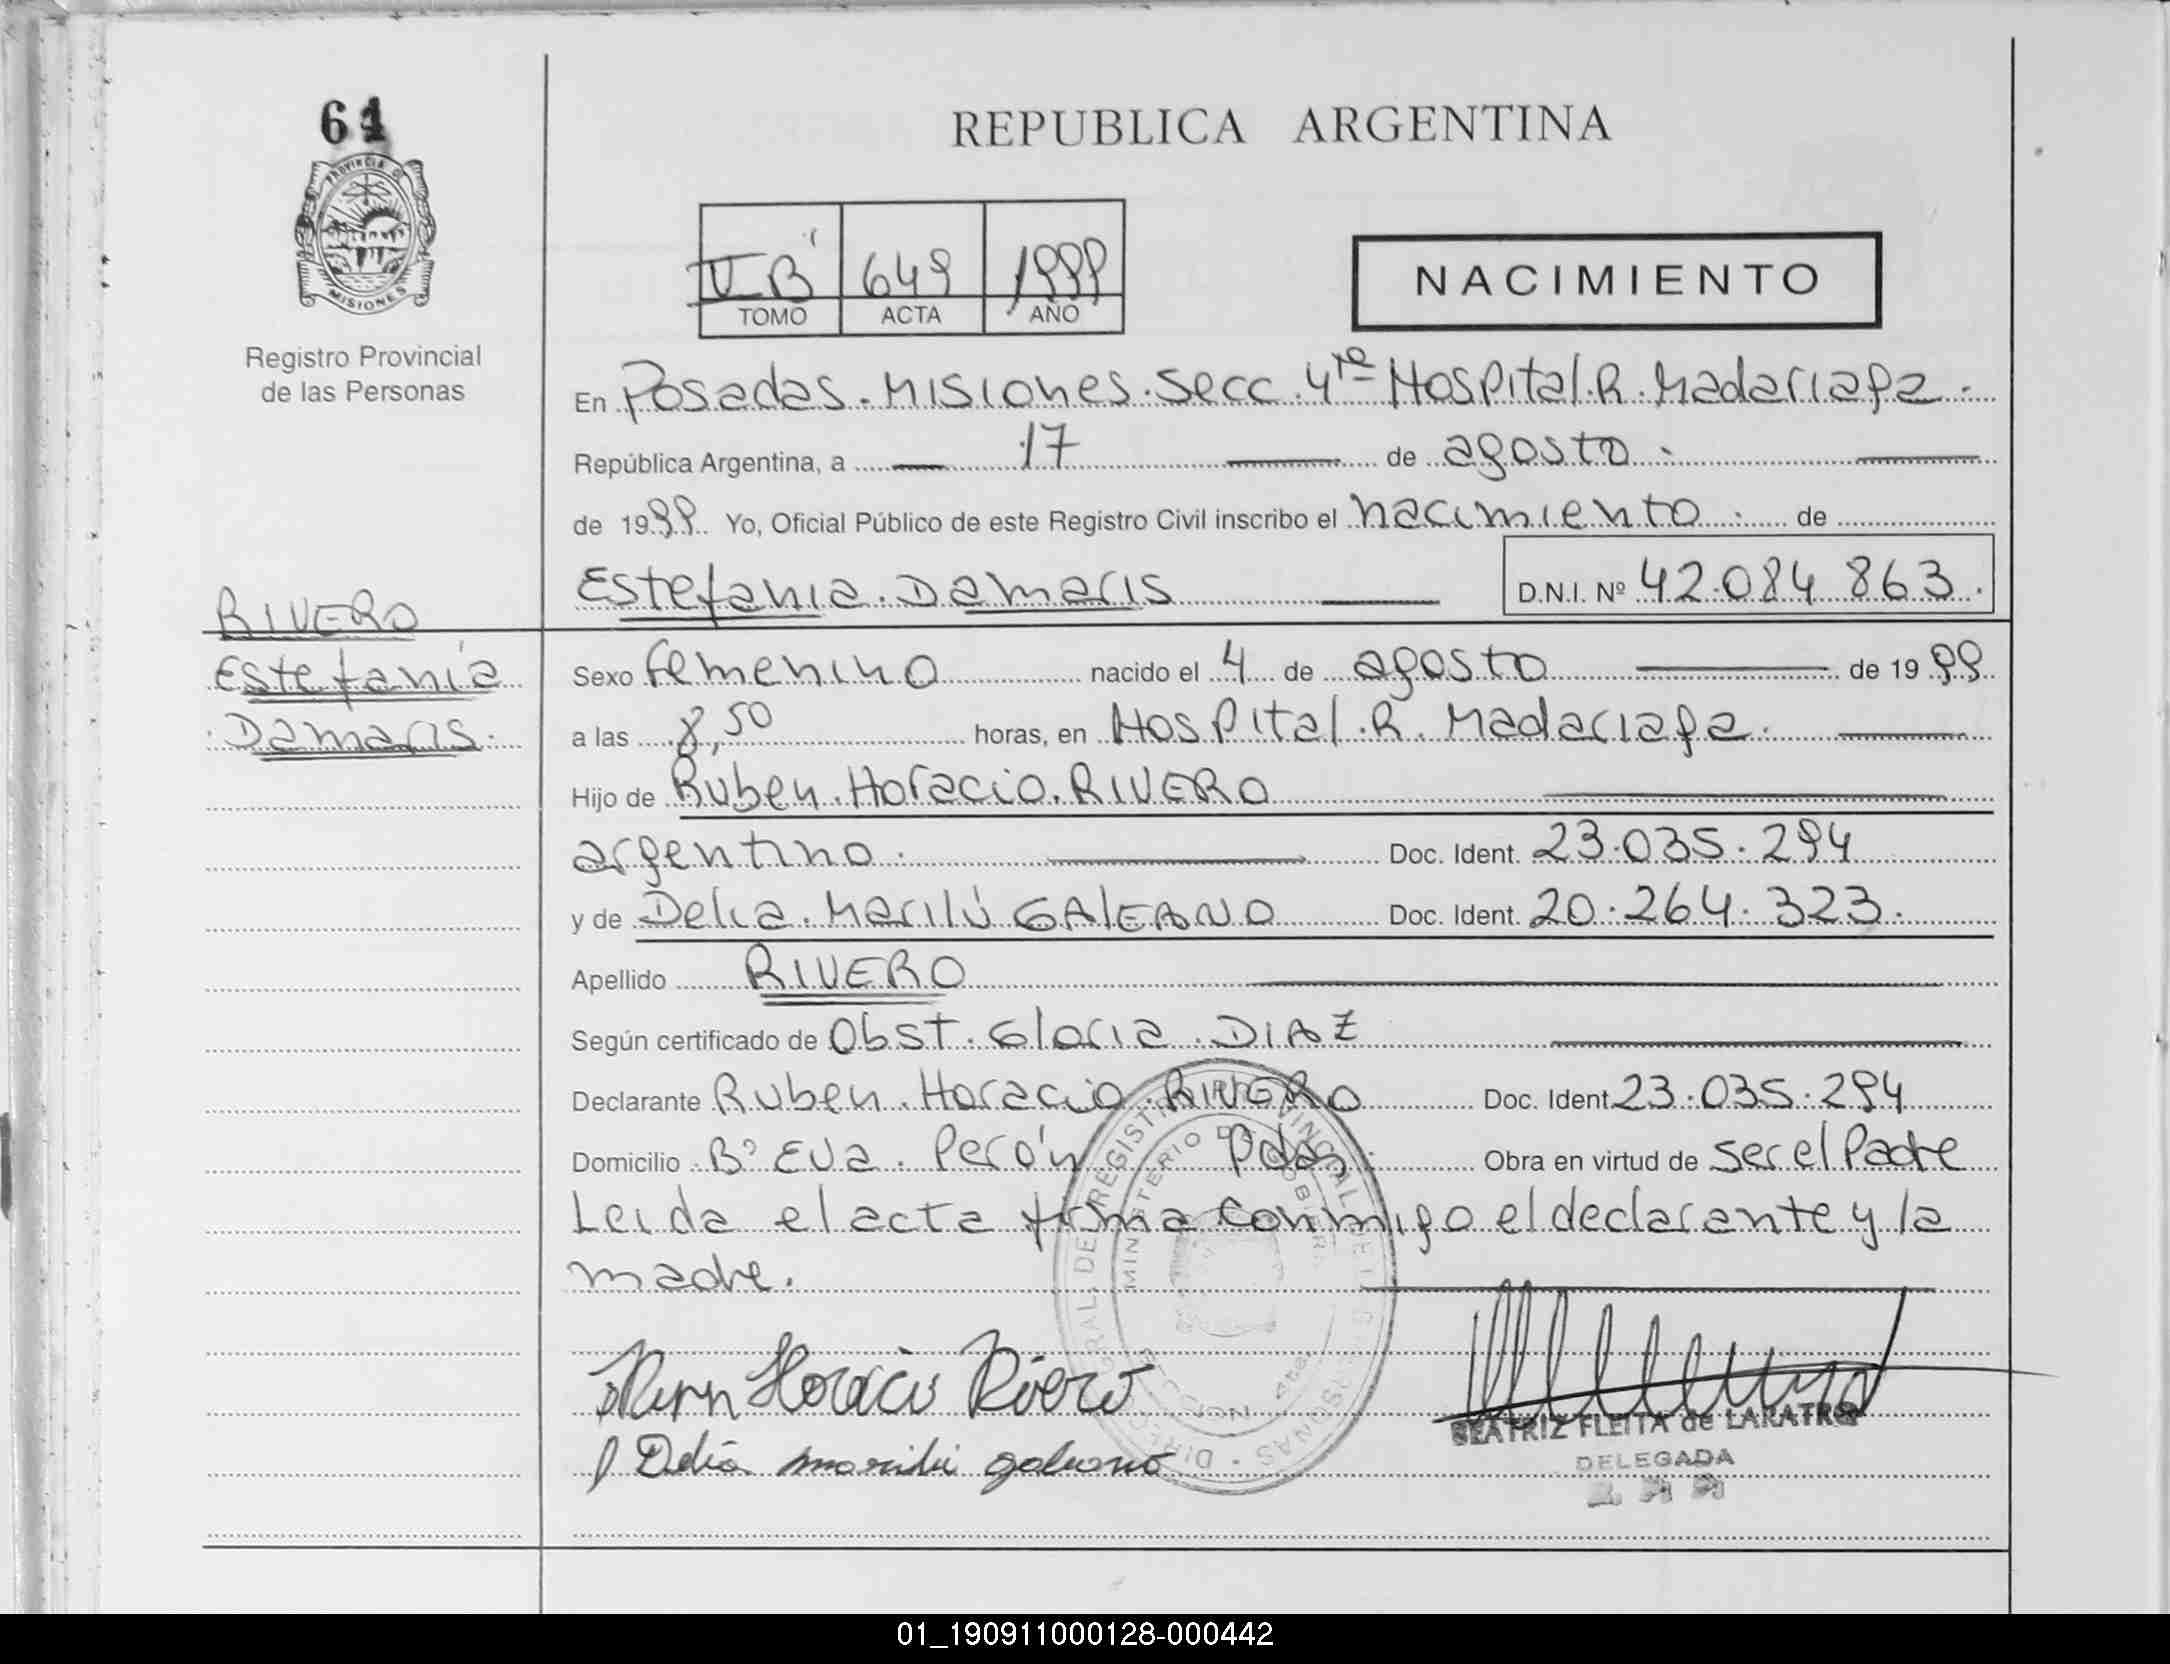 61
REPUBLICA ARGENTINA
PROVINCIA D
MISIONES
Registro Provincial
de las Personas
II B 649 1999
TOMO ACTA AÑO
NACIMIENTO
En Posadas. Misiones. Secc. 4ta Hospital. R. Madariaga.
República Argentina, a 17 de agosto.
de 1999. Yo, Oficial Público de este Registro Civil inscribo el nacimiento. de
Estefania. Damaris D.N.I. Nº 42.084 863.
RIVERO
Estefanía
Damaris.
Sexo femenino nacido el 4 de agosto de 19 99
a las 8,50 horas, en Hospital. R. Madariaga.
Hijo de Ruben. Horacio. RIVERO
argentino. Doc. Ident. 23.035.294
y de Delia. Marilú GALEANO Doc. Ident. 20.264.323.
Apellido RIVERO
Según certificado de Obst. Gloria. DIAZ
Declarante Ruben. Horacio. RIVERO Doc. Ident. 23.035.294
Domicilio Bº Eva. Perón Pdas. Obra en virtud de ser el Padre
Leida el acta firma conmigo el declarante y la
madre.
Horacio Rivero
Delia marilu galeano
BEATRIZ FLEITA de LARATRO
DELEGADA
01_190911000128-000442